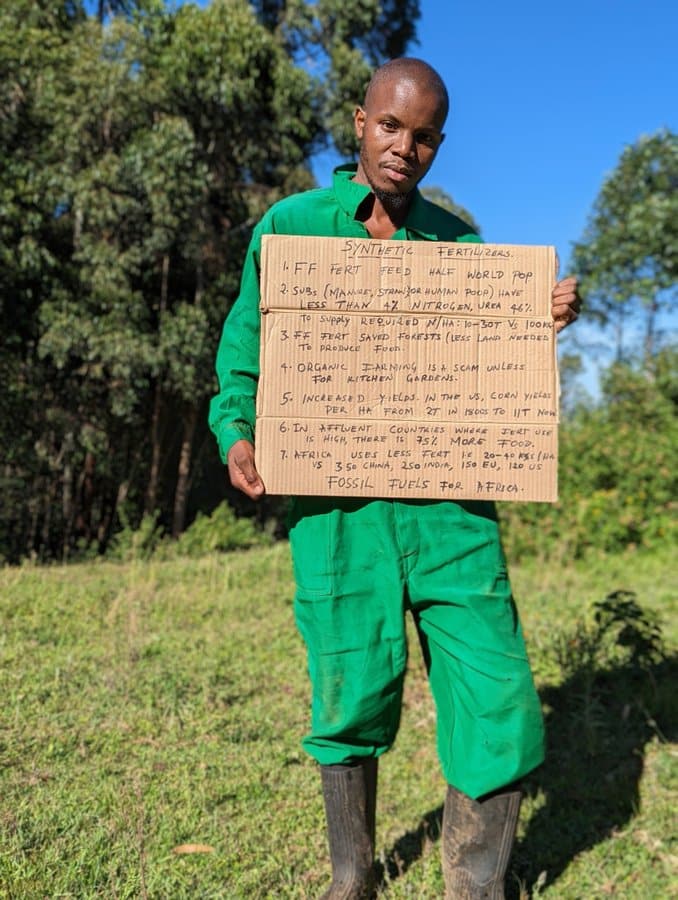 SYNTHETIC FERTILIZERS.
1. FF FERT FEED HALF WORLD POP
2. SUBS (MANURE, STRAW OR HUMAN POOP) HAVE
LESS THAN 4% NITROGEN, UREA 46%.
TO SUPPLY REQUIRED N/HA: 10-30T VS 100KG
3. FF FERT SAVED FORESTS (LESS LAND NEEDED
TO PRODUCE FOOD.
4. ORGANIC FARMING IS A SCAM UNLESS
FOR KITCHEN GARDENS.
5. INCREASED YIELDS. IN THE US, CORN YIELDS
PER HA FROM 2T IN 1800S TO 11T NOW
6. IN AFFLUENT COUNTRIES WHERE FERT USE
IS HIGH, THERE IS 75% MORE FOOD,
7. AFRICA USES LESS FERT IE 20-40KGS/HA
VS 350 CHINA, 250 INDIA, 150 EU, 120 US
FOSSIL FUELS FOR AFRICA.